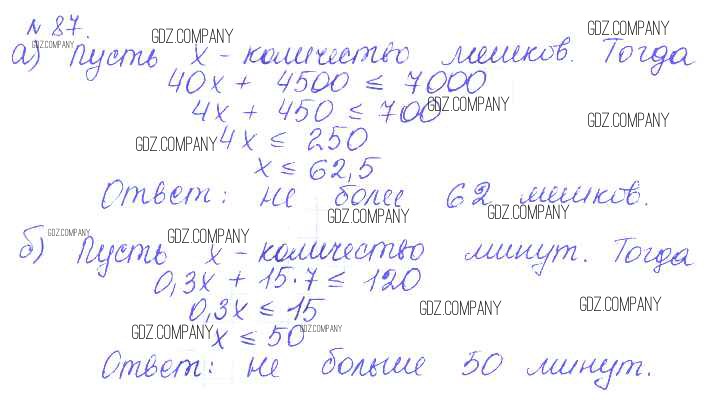 № 87.
а) Пусть x - количество мешков. Тогда
40x + 4500 ≤ 7000
4x + 450 ≤ 700
4x ≤ 250
x ≤ 62,5
Ответ: не более 62 мешков.
б) Пусть x - количество минут. Тогда
0,3x + 15·7 ≤ 120
0,3x ≤ 15
x ≤ 50
Ответ: не больше 50 минут.
GDZ.COMPANY
GDZ.COMPANY
GDZ.COMPANY
GDZ.COMPANY
GDZ.COMPANY
GDZ.COMPANY
GDZ.COMPANY
GDZ.COMPANY
GDZ.COMPANY
GDZ.COMPANY
GDZ.COMPANY
GDZ.COMPANY
GDZ.COMPANY
GDZ.COMPANY